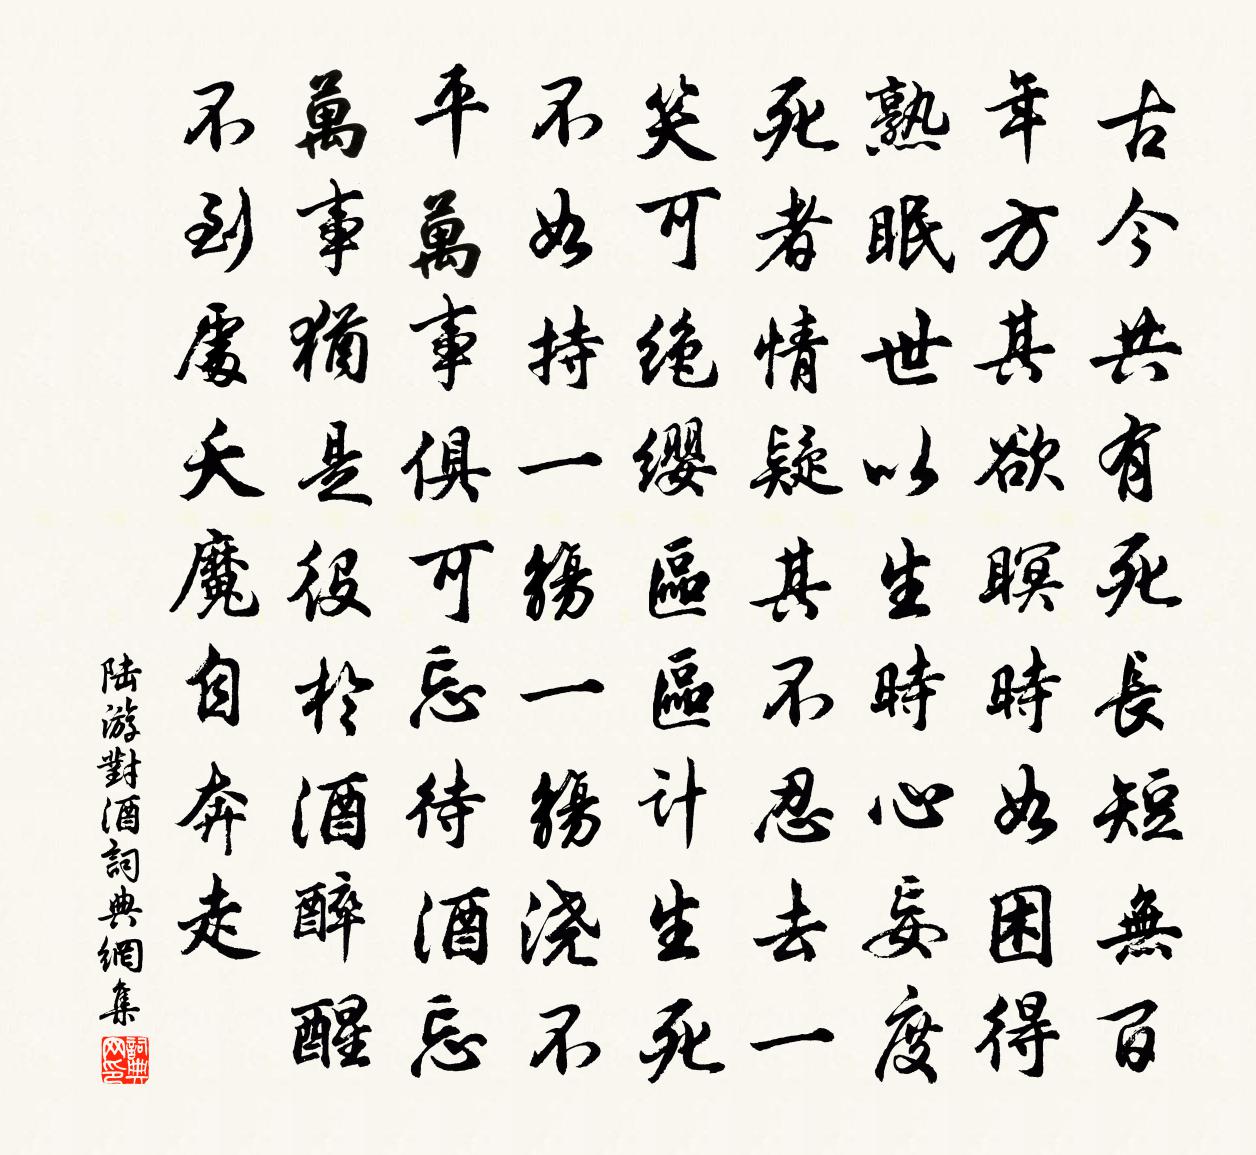 古今共有死長短無百
年方其欲瞑時如困得
熟眠世以生時心妄度
死者情疑其不忍去一
笑可絶纓區區計生死
不如持一觴一觴浇不
平萬事俱可忘待酒忘
萬事猶是役於酒醉醒
不到處天魔自奔走
陆游對酒詞典網集
詞典网印